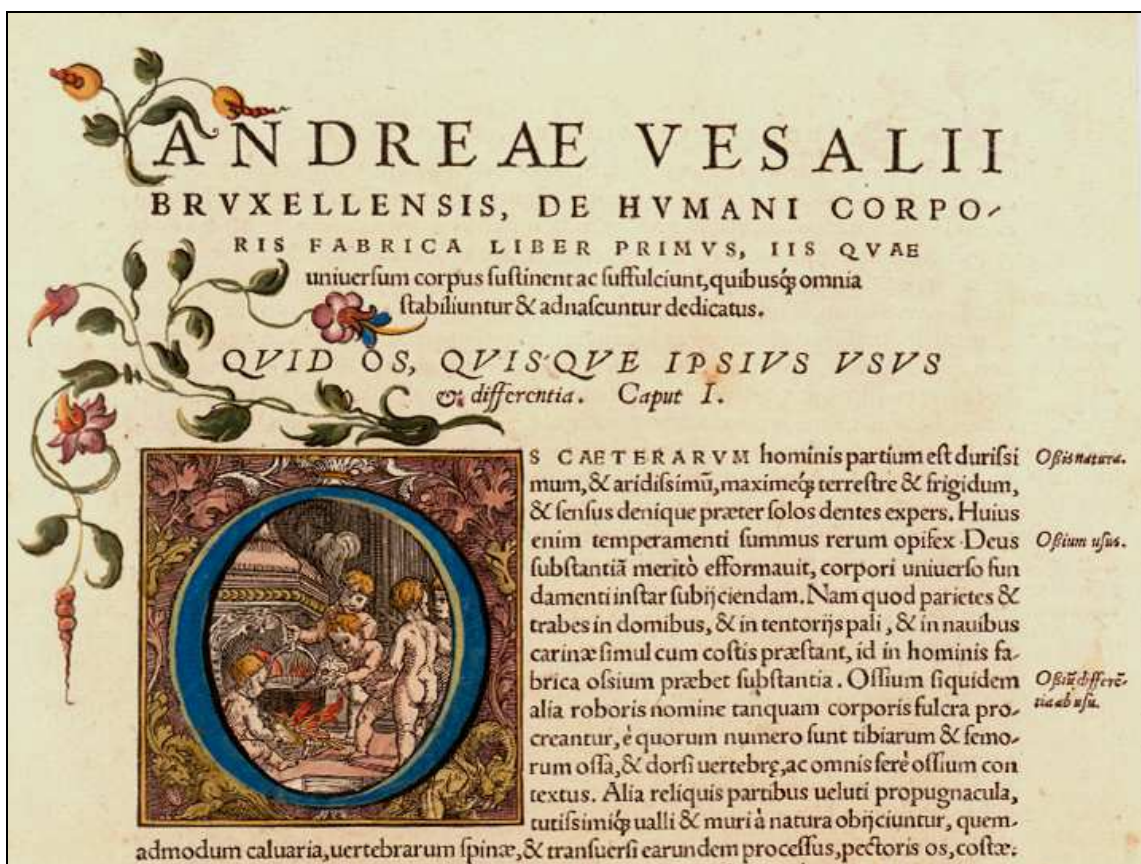 ANDREAE VESALII
BRVXELLENSIS, DE HVMANI CORPO-
RIS FABRICA LIBER PRIMVS, IIS QVAE
uniuerſum corpus ſuſtinent ac ſuffulciunt, quibusq́ꝫ omnia
ſtabiliuntur & adnaſcuntur dedicatus.
QVID OS, QVISQVE IPSIVS VSVS
& differentia. Caput I.
OS CAETERARVM hominis partium est duriſsi
Oßis natura.
mum, & aridiſsimũ, maximeq́ꝫ terreſtre & frigidum,
& ſenſus denique præter ſolos dentes expers. Huius
enim temperamenti ſummus rerum opifex Deus
Oßium uſus.
ſubſtantiã meritò efformauit, corpori uniuerſo fun
damenti inſtar ſubijciendam. Nam quod parietes &
trabes in domibus, & in tentorijs pali, & in nauibus
carinæ ſimul cum coſtis præſtant, id in hominis fa-
brica oſsium præbet ſubſtantia. Oſsium ſiquidem
Oßiũ differẽ-
alia roboris nomine tanquam corporis fulcra pro-
tia ab uſu.
creantur, è quorum numero ſunt tibiarum & femo-
rum oſſa, & dorſi uertebrę, ac omnis ferè oſsium con
textus. Alia reliquis partibus ueluti propugnacula,
tutiſsimiq́ꝫ ualli & muri à natura obijciuntur, quem-
admodum caluaria, uertebrarum ſpinæ, & tranſuerſi earundem proceſſus, pectoris os, coſtæ: